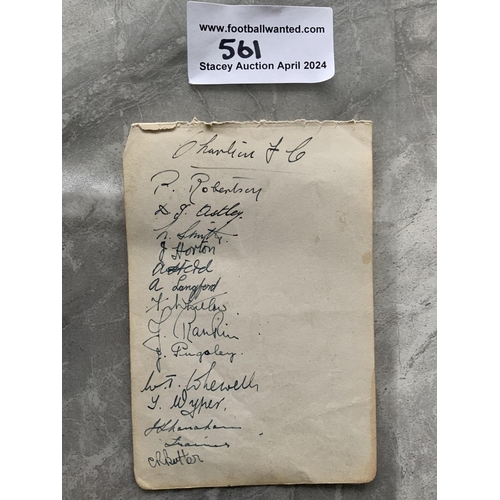 www.footballwanted.com
561
Stacey Auction April 2024
Charlton F C
P. Robertson
D J. Astley.
N. Smith
J Horton
A Langford
F. Whitlow
J. Rankin
J. Pugsley.
W. T. Whewell
T. Wyper.
Trainer